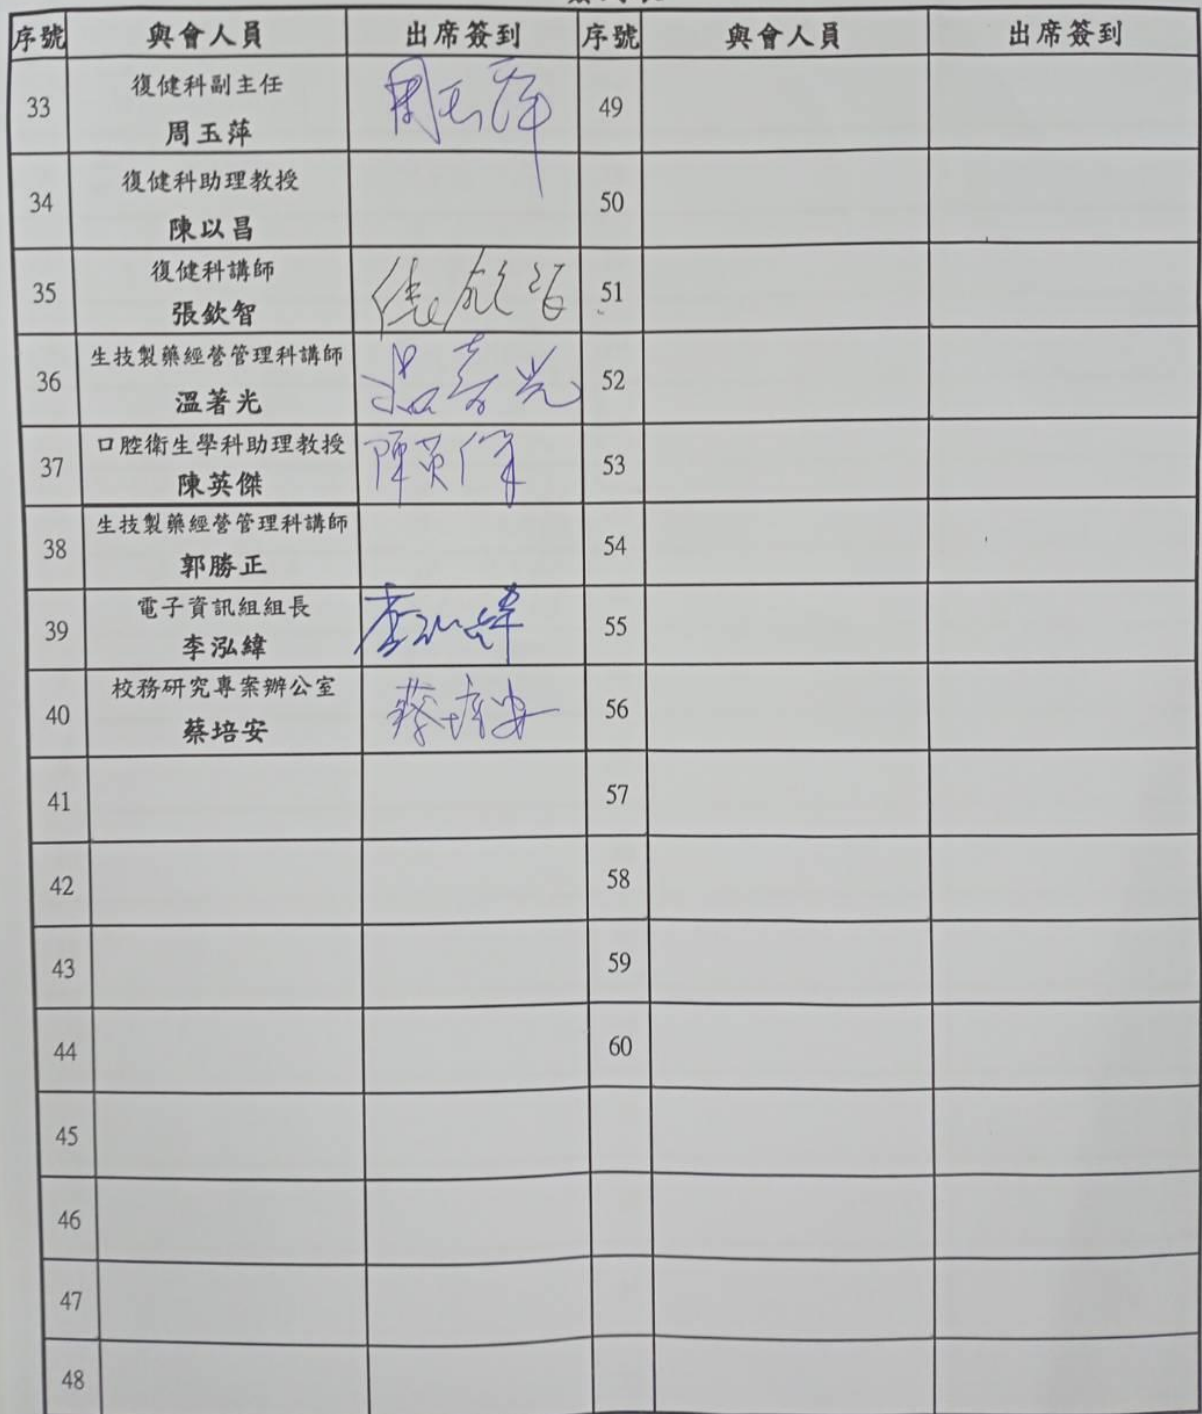 序號 與會人員 出席簽到 序號 與會人員 出席簽到
33 復健科副主任 周玉萍 49
周玉萍
34 復健科助理教授 50
陳以昌
35 復健科講師 51
張欽智
36 生技製藥經營管理科講師 52
溫著光
37 口腔衛生學科助理教授 陳英傑 53
陳英傑
38 生技製藥經營管理科講師 54
郭勝正
39 電子資訊組組長 李泓緯 55
李泓緯
40 校務研究專案辦公室 蔡培安 56
蔡培安
41 57
42 58
43 59
44 60
45
46
47
48